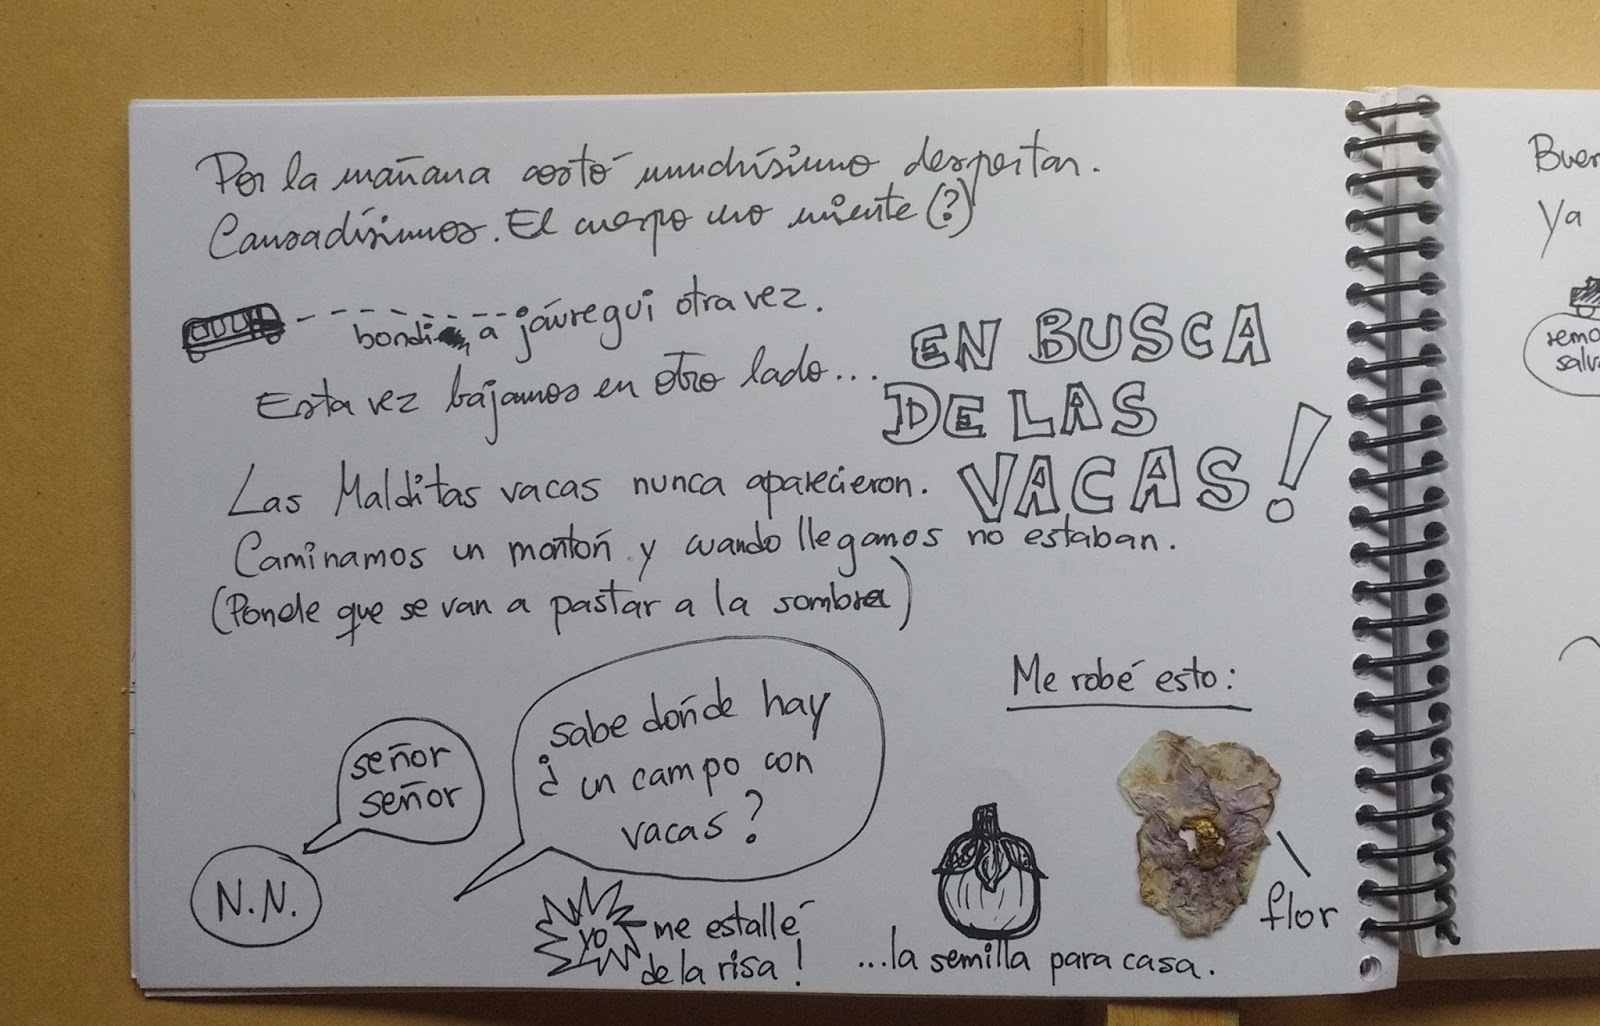 Por la mañana costó muchísimo despertar.
Cansadísimos. El cuerpo no miente (?)
bondi a jáuregui otra vez.
Esta vez bajamos en otro lado...
EN BUSCA
DE LAS
VACAS!
Las Malditas vacas nunca aparecieron.
Caminamos un montón y cuando llegamos no estaban.
(Ponele que se van a pastar a la sombra)
señor
señor
N.N.
sabe dónde hay
¿ un campo con
vacas?
yo
me estallé
de la risa!
Me robé esto:
flor
...la semilla para casa.
Ya